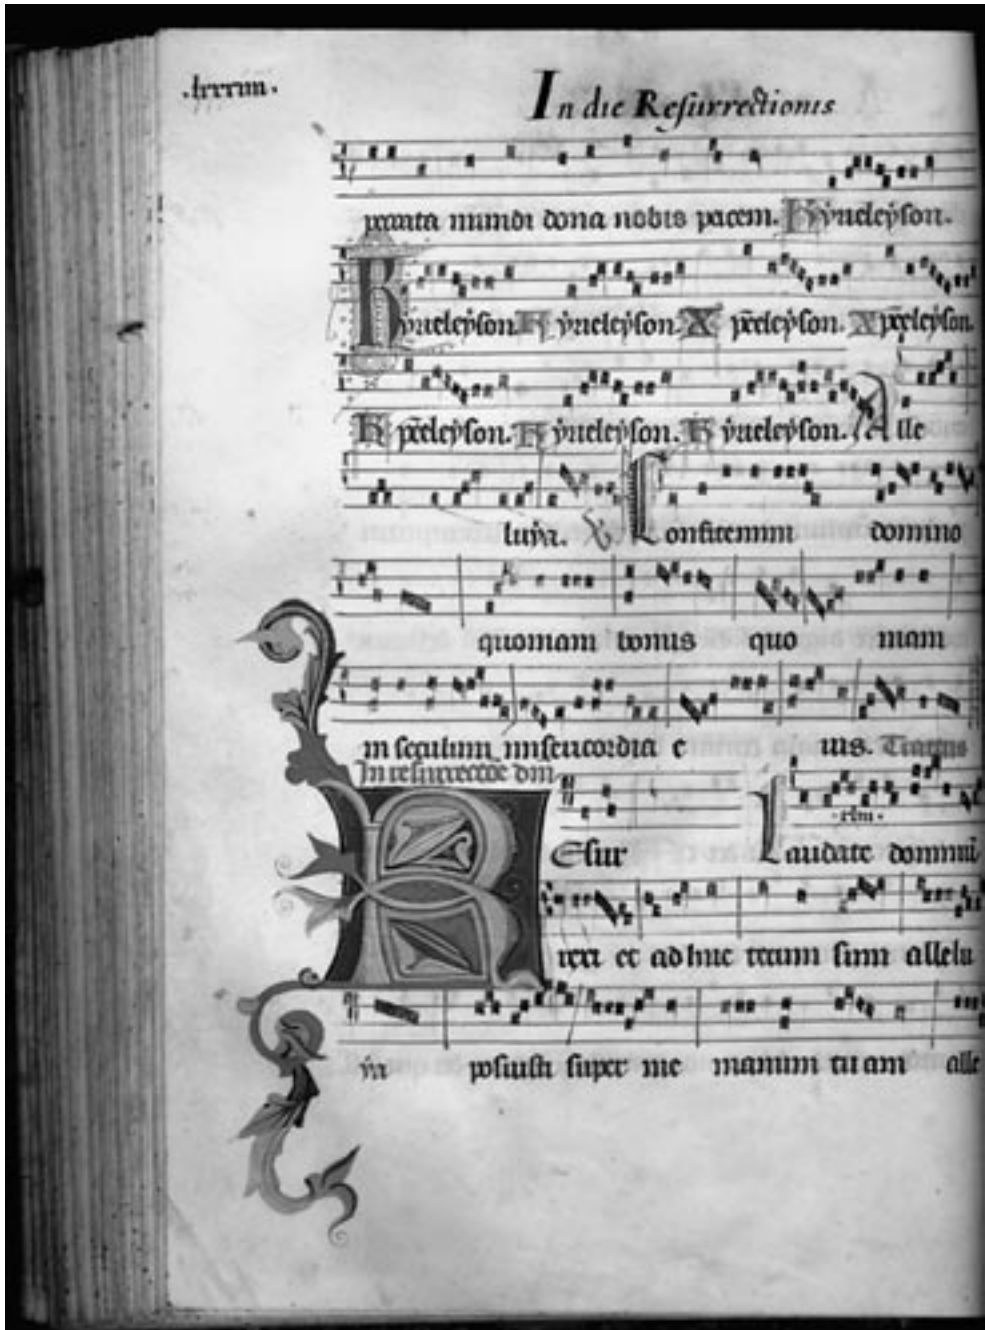 .lxxxiiii.
In die Resurrectionis
peccata mundi dona nobis pacem. Kyrieleyson.
Kyrieleyson. Kyrieleyson. Xpeeleyson. Xpeeleyson.
Xpeeleyson. Kyrieleyson. Kyrieleyson. Alle
luya. Confitemini domino
quoniam bonus quo niam
in seculum misericordia e ius. Tractus
In resurrectoe dni
Esur Laudate dominu
rexi et adhuc tecum sum allelu
ya posuisti super me manum tuam alle